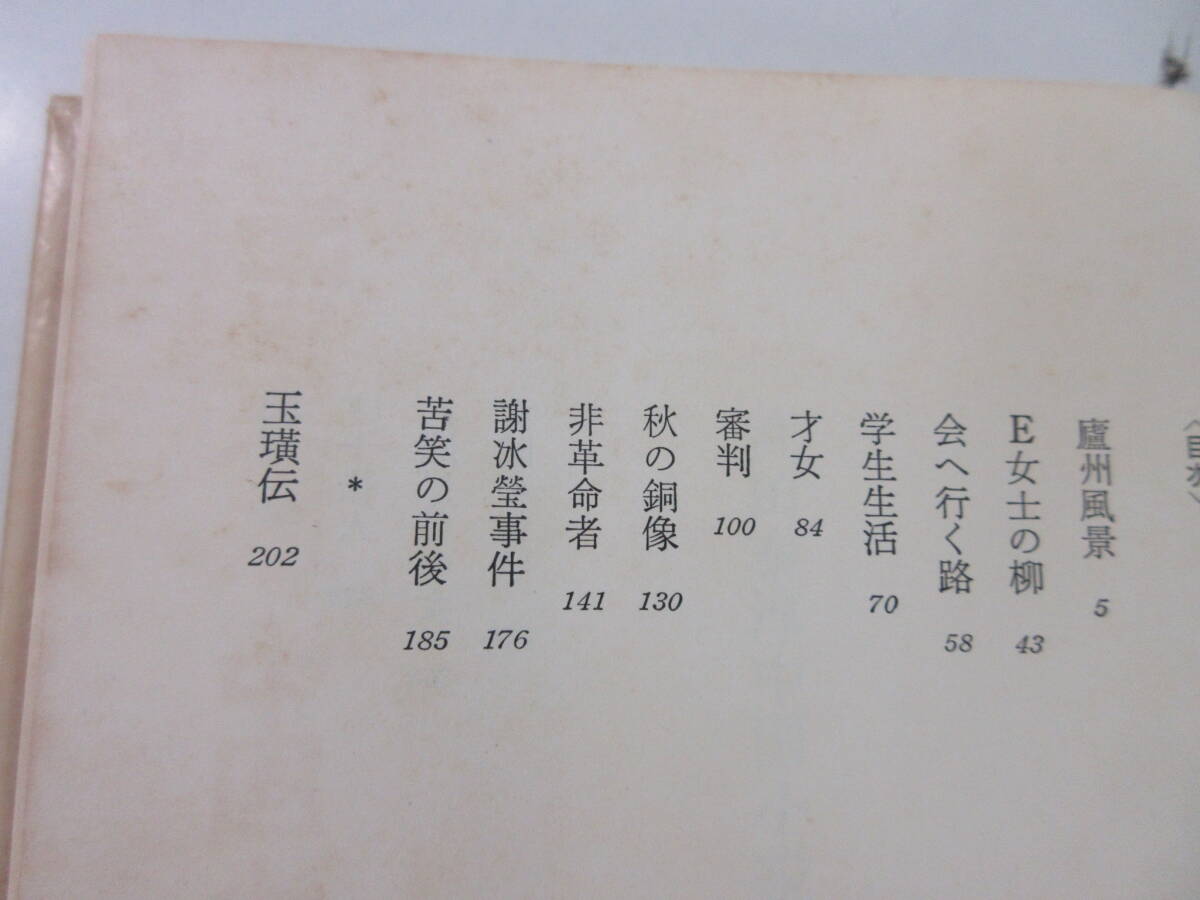 〈目次〉
廬州風景 5
E女士の柳 43
会へ行く路 58
学生生活 70
才女 84
審判 100
秋の銅像 130
非革命者 141
謝冰瑩事件 176
苦笑の前後 185
*
玉璜伝 202